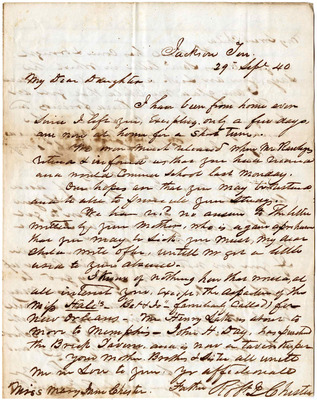 Jackson Ten.
29th Sept. 40
My Dear Daughter.
I have been from home ever
since I left you, excepting only a few days,
am now at home for a short time.
We were much relieved when Mr
returned & informed us that you had
and would Commence School last Monday.
Our hopes are that you may
to
We have rec'd no answer to the letter
written by your Mother, who is again afraid
that you may be Sick. You must, My dear
Child write often, untill we get a little
used to your absence.
I know of nothing here that would at
all interest you, except the departure of the
Miss Hall's for
New Orleans. Mr Henry is about to
move to Memphis - John H. Day, has
the Brick Tavern and is now a tavern keeper
Your Mother Brother & Sister all unite
Me in Love to you. Yr affectionate
Father
Miss Mary Jane Chester. R H P Chester